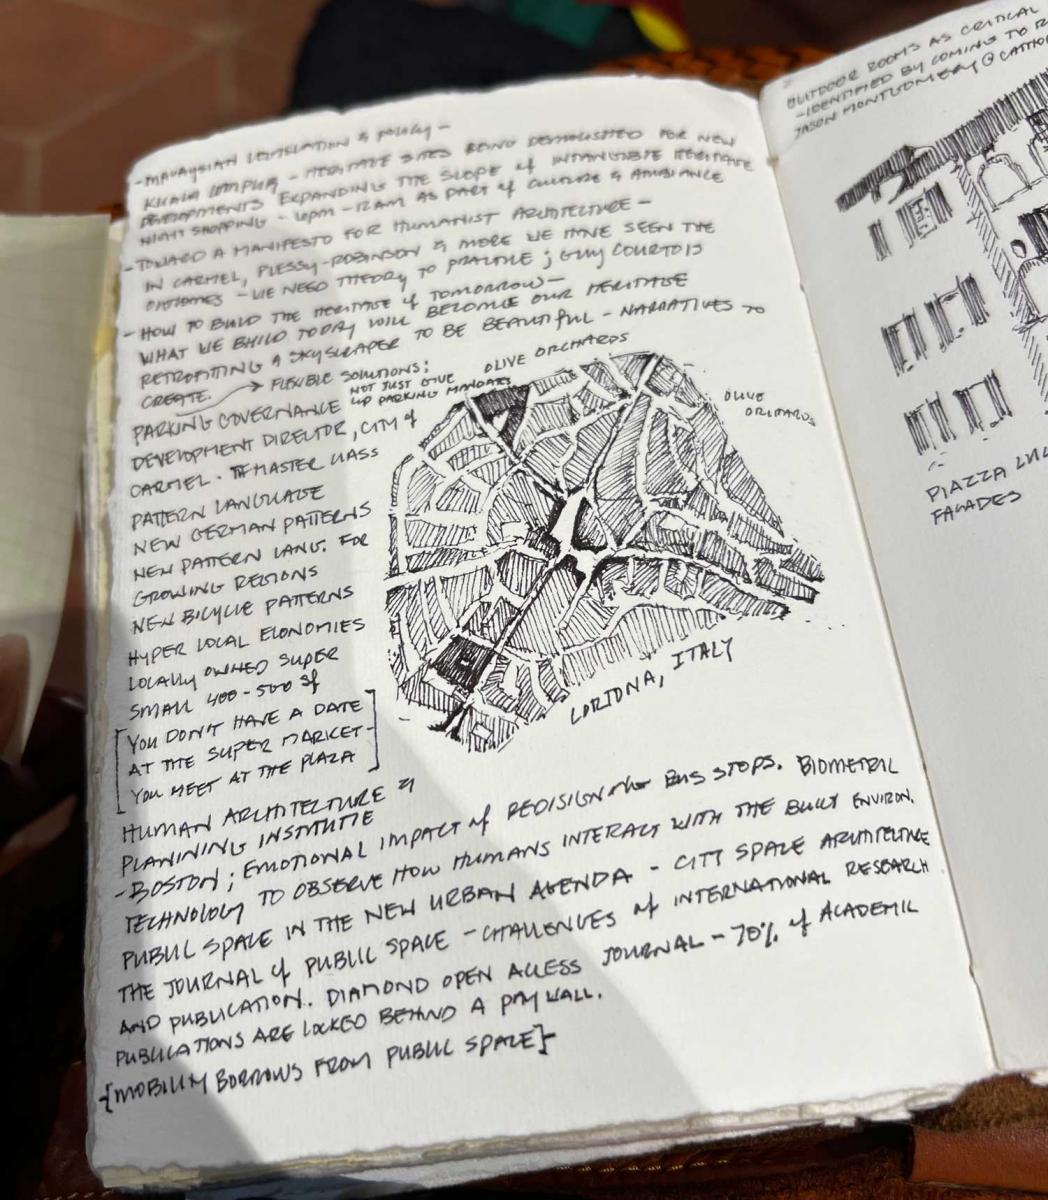 - MALAYSIAN LEGISLATION & POLICY -
KUALA LUMPUR - HERITAGE SITES BEING DEMOLISHED FOR NEW
DEVELOPMENTS EXPANDING THE SLOPE of INTANGIBLE HERITAGE
NIGHT SHOPPING - 6PM - 12AM AS PART of CULTURE & AMBIANCE
- TOWARD A MANIFESTO FOR HUMANIST ARCHITECTURE -
IN CARMEL, PLESSY-ROBINSON & MORE WE HAVE SEEN THE
OUTCOMES - WE NEED THEORY TO PRACTICE ; GUY COURTOIS
- HOW TO BUILD THE HERITAGE of TOMORROW -
WHAT WE BUILD TODAY WILL BECOME OUR HERITAGE
RETROFITTING A SKYSCRAPER TO BE BEAUTIFUL - NARRATIVES TO
CREATE.
→ FLEXIBLE SOLUTIONS;
NOT JUST GIVE
UP PARKING MANDATES
PARKING GOVERNANCE
DEVELOPMENT DIRECTOR, CITY of
CARMEL. MASTER CLASS
PATTERN LANGUAGE
NEW GERMAN PATTERNS
NEW PATTERN LANG. FOR
GROWING REGIONS
NEW BICYCLE PATTERNS
HYPER LOCAL ECONOMIES
LOCALLY OWNED SUPER
SMALL 400-500 sf
[YOU DON'T HAVE A DATE
AT THE SUPER MARKET -
YOU MEET AT THE PLAZA]
OLIVE ORCHARDS
OLIVE
ORCHARDS
CORTONA, ITALY
HUMAN ARCHITECTURE &
PLANINING INSTITUTE
- BOSTON ; EMOTIONAL IMPACT of REDISIGN BUS STOPS. BIOMETRIC
TECHNOLOGY TO OBSERVE HOW HUMANS INTERACT WITH THE BUILT ENVIRON.
PUBLIC SPACE IN THE NEW URBAN AGENDA - CITY SPACE ARCHITECTURE
THE JOURNAL of PUBLIC SPACE - CHALLENGES of INTERNATIONAL RESEARCH
AND PUBLICATION. DIAMOND OPEN ACCESS JOURNAL - 70% of ACADEMIC
PUBLICATIONS ARE LOCKED BEHIND A PAY WALL.
{MOBILITY BORROWS FROM PUBLIC SPACE}
OUTDOOR ROOMS AS CRITICAL
- IDENTIFIED BY COMING TO
JASON MONTGOMERY @
PIAZZA
FACADES